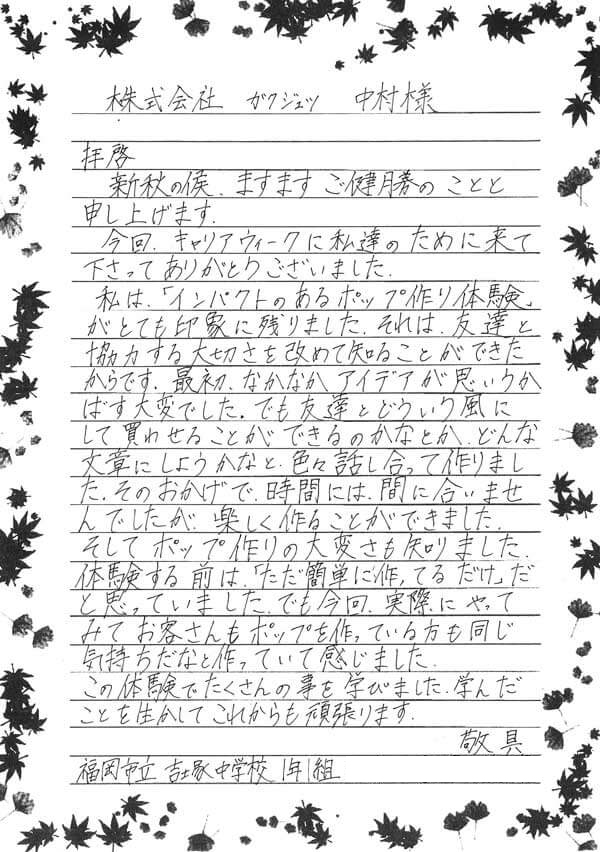 株式会社 ガクジュツ 中村様
拝啓
新秋の候、ますます ご健勝の ことと
申し上げます。
今回、キャリアウィークに私達の ために来て
下さって ありがとうございました。
私は、「インパクトのあるポップ作り体験」
がとても印象に残りました。それは、友達と
協力する大切さを改めて知ることができた
からです。最初、なかなか アイデアが思いうか
ばず大変でした。でも友達とどういう風に
して買わせることができるのかなとか、どんな
文章にしようかなと、色々話し合って作りまし
た。そのおかげで、時間には、間に合いませ
んでしたが、楽しく作ることができました。
そして ポップ作りの大変さも知りました。
体験する前は、「ただ簡単に作ってるだけ」だ
と思っていました。でも今回、実際にやって
みてお客さんもポップを作っている方も同じ
気持ちだなと作っていて感じました。
この体験でたくさんの事を学びました。学んだ
ことを生かしてこれからも頑張ります。
敬具
福岡市立 吉塚中学校 1年1組